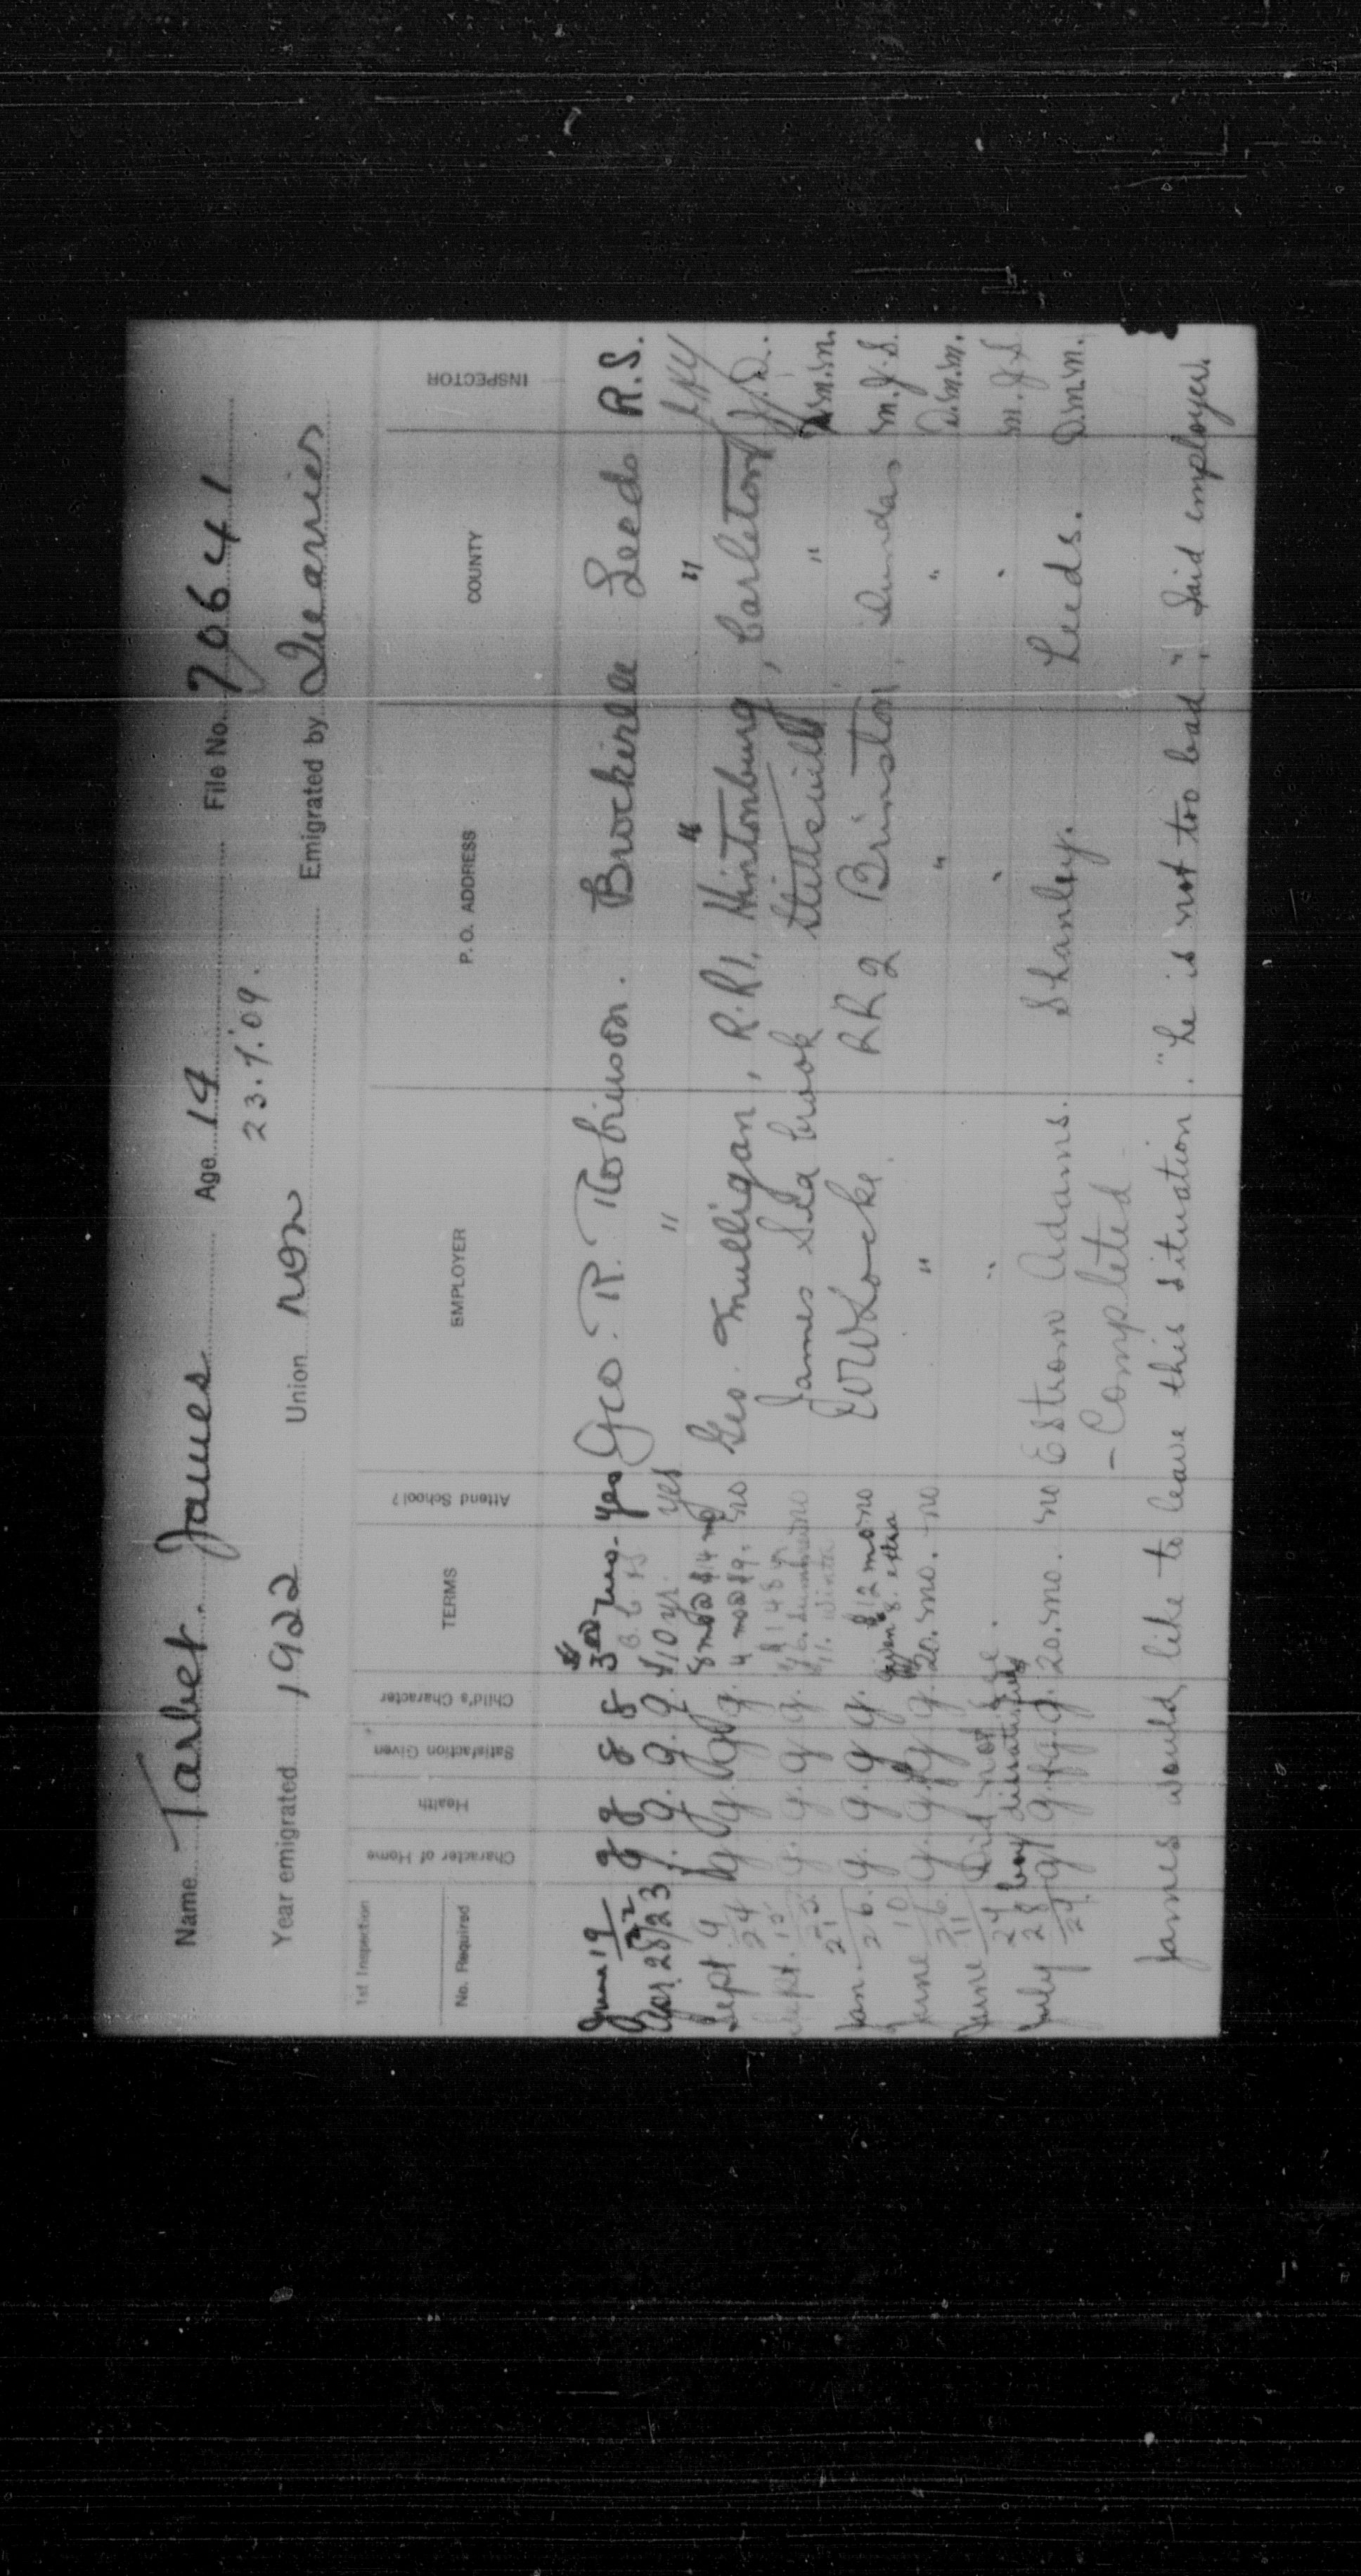 Name Tarbet James Age 14 File No. 70641
23.1.'09.
Year emigrated 1922 Union non Emigrated by Quearrier
1st Inspection
No. Required Character of Home Health Satisfaction Given Child's Character TERMS Attend School? EMPLOYER P. O. ADDRESS COUNTY INSPECTOR
June 19/22 g g g g $3.00 mo. yes Geo. R. Robinson. Brockville Leeds R.S.
Apr. 28/23 f. g. g. g. $10 yr. yes " " "
Sept. 4/24 g g. g g. 8 mo @ $14 mo 4 mo @ $9. no Geo. Mulligan, R.R1, Hintonburg, Carleton J.D.
Sept. 15/25 g. g. g g. no James Seabrook Stittsville " D.M.M.
Jan. 21/26. g. g. g g. $12 mo no E W Locke R R 2 Brinston Dundas M.J.S.
given $8. extra
June 10/26. g. g. fg g. 20. mo. no " " " D.M.M.
June 11/27 Did not see. " " " M.J.S.
boy dissatisfied
July 28/27. g g. fg. g. 20. mo. no Estrom Adams. Shanley. Leeds. D.M.M.
- Completed -
James would like to leave this situation. "he is not too bad", said employer.